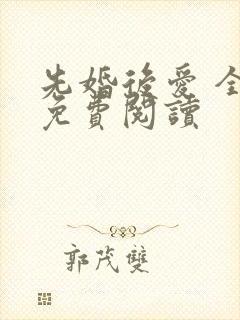 先婚後愛 全
免費閱讀
郭茂雙